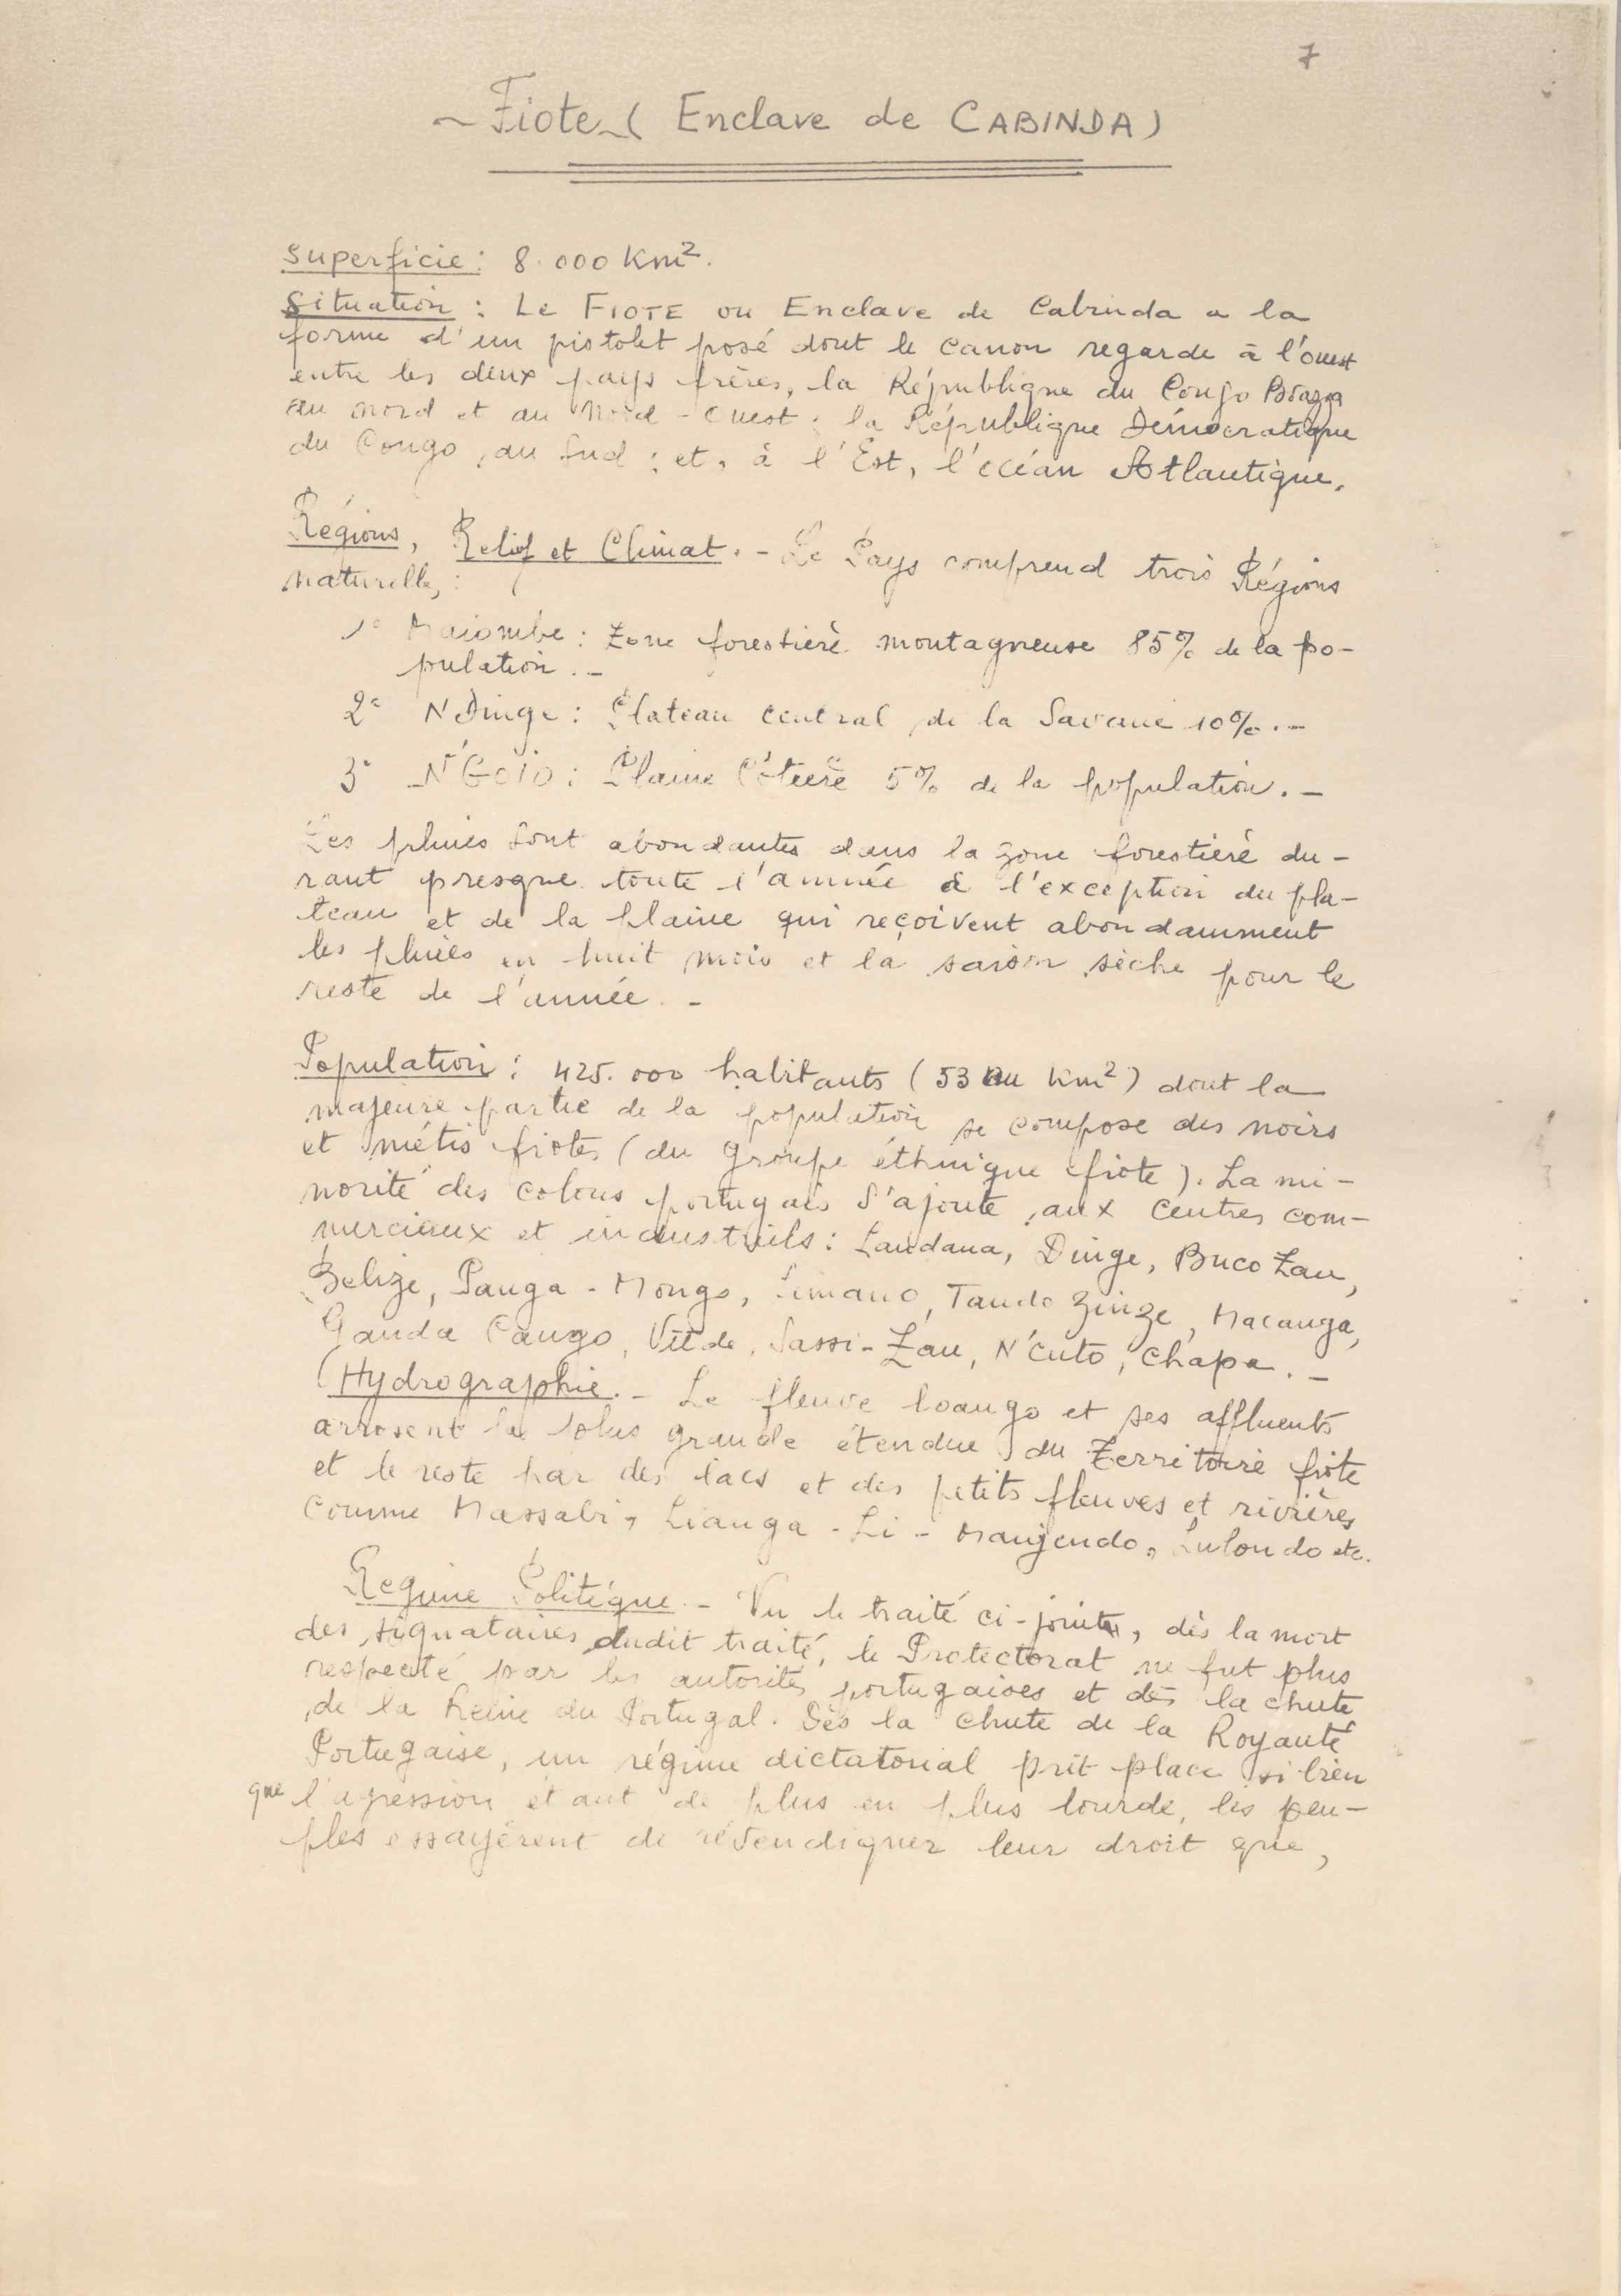 7
~ Fiote ~ ( Enclave de CABINDA )
Superficie : 8.000 Km².
Situation : Le FIOTE ou Enclave de Cabinda a la
forme d'un pistolet posé dont le canon regarde à l'ouest
entre les deux pays frères, la République du Congo Brazza
au nord et au Nord-Ouest ; la République Démocratique
du Congo, au Sud ; et, à l'Est, l'océan Atlantique.
Régions, Relief et Climat. - Le Pays comprend trois Régions
Naturelles :
1° Maiombe : Zone forestière montagneuse 85% de la po-
pulation. -
2° N'Dinge : Plateau central de la Savane 10%. -
3° N'Goio : Plaine Côtière 5% de la population. -
Les pluies sont abondantes dans la zone forestière du-
rant presque toute l'année à l'exception du pla-
teau et de la plaine qui reçoivent abondamment
les pluies en huit mois et la saison sèche pour le
reste de l'année. -
Population : 425.000 habitants ( 53 au Km² ) dont la
majeure partie de la population se compose des noirs
et métis fiotes ( du groupe éthnique fiote ). La mi-
norité des colons portugais s'ajoute aux centres com-
merciaux et industriels : Landana, Dinge, Buco Zau,
Belize, Panga-Mongo, Tando Zinze, Macanga,
Ganda Cango, Vitde, Sassi-Zau, N'Cuto, Chapa. -
Hydrographie. - Le fleuve loango et ses affluents
arrosent la plus grande étendue du Territoire fiote
et le reste par des lacs et des petits fleuves et rivières
comme Massabi, Lianga-Li-Manjendo, Lulondo etc.
Regime Politique. - Vu le traité ci-joint, dès la mort
des signataires dudit traité, le Protectorat ne fut plus
respecté par les autorités portugaises et dès la chute
de la Reine du Portugal. Dès la chute de la Royauté
Portugaise, un régime dictatorial prit place si bien
que l'agression étant de plus en plus lourde, les peu-
ples essayèrent de revendiquer leur droit que,